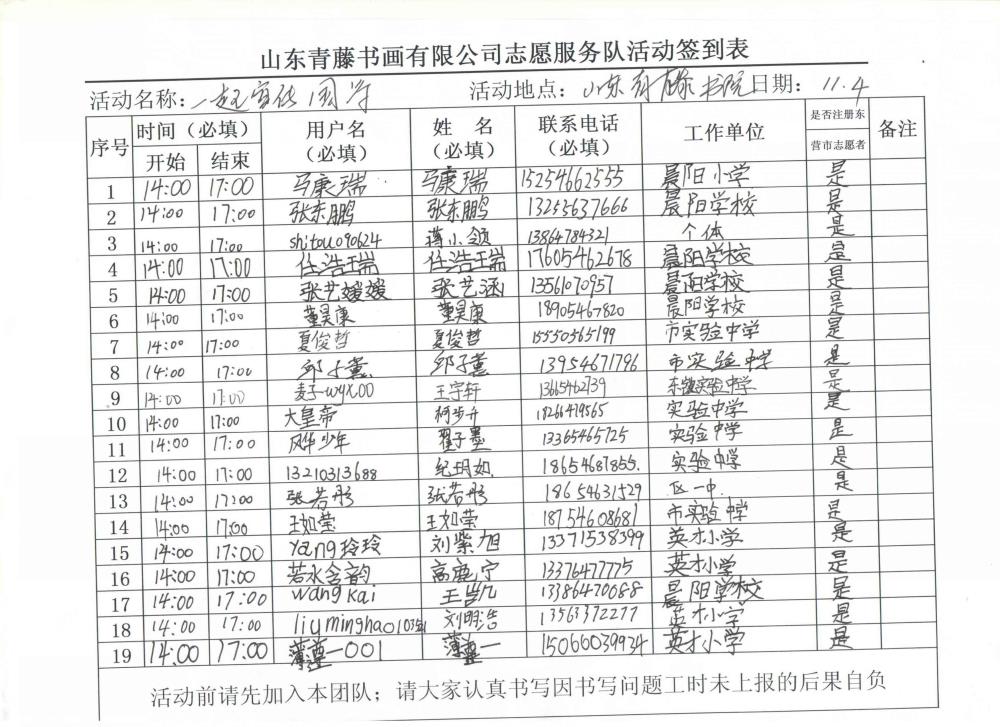 山东青藤书画有限公司志愿服务队活动签到表
活动名称：一起宣传国学 活动地点：山东青藤书院 日期：11.4
序号 时间（必填） 用户名（必填） 姓 名（必填） 联系电话（必填） 工作单位 是否注册东营市志愿者 备注
开始 结束
1 14:00 17:00 马康瑞 马康瑞 15254662555 晨阳小学 是
2 14:00 17:00 张东鹏 张东鹏 13255637666 晨阳学校 是
3 14:00 17:00 shitou090624 蒋小领 13864784321 个体 是
4 14:00 17:00 任浩瑞 任浩瑞 17605462678 晨阳学校 是
5 14:00 17:00 张艺嫒嫒 张艺涵 13561070957 晨阳学校 是
6 14:00 17:00 董昊康 董昊康 18905467820 晨阳学校 是
7 14:00 17:00 夏俊哲 夏俊哲 15550565199 市实验中学 是
8 14:00 17:00 邱子薰 邱子薰 13954671796 市实验中学 是
9 14:00 17:00 麦子-wyx00 王宇轩 13665462739 实验中学 是
10 14:00 17:00 大皇帝 柯步升 18266479565 实验中学 是
11 14:00 17:00 风华少年 翟子墨 13365465725 实验中学 是
12 14:00 17:00 13210313688 纪玥如 18654687855. 实验中学 是
13 14:00 17:00 张若彤 张若彤 18654631529 区一中 是
14 14:00 17:00 王如荣 王如荣 18754608681 市实验中学 是
15 14:00 17:00 Yang玲玲 刘紫旭 13371538399 英才小学 是
16 14:00 17:00 若水含韵 高鹿宁 13376477775 英才小学 是
17 14:00 17:00 wangkai 王凯 13386470088 晨阳学校 是
18 14:00 17:00 liuminghao 刘明浩 13563372277 英才小学 是
19 14:00 17:00 薄莲一001 薄莲一 15066039934 英才小学 是
活动前请先加入本团队；请大家认真书写因书写问题工时未上报的后果自负